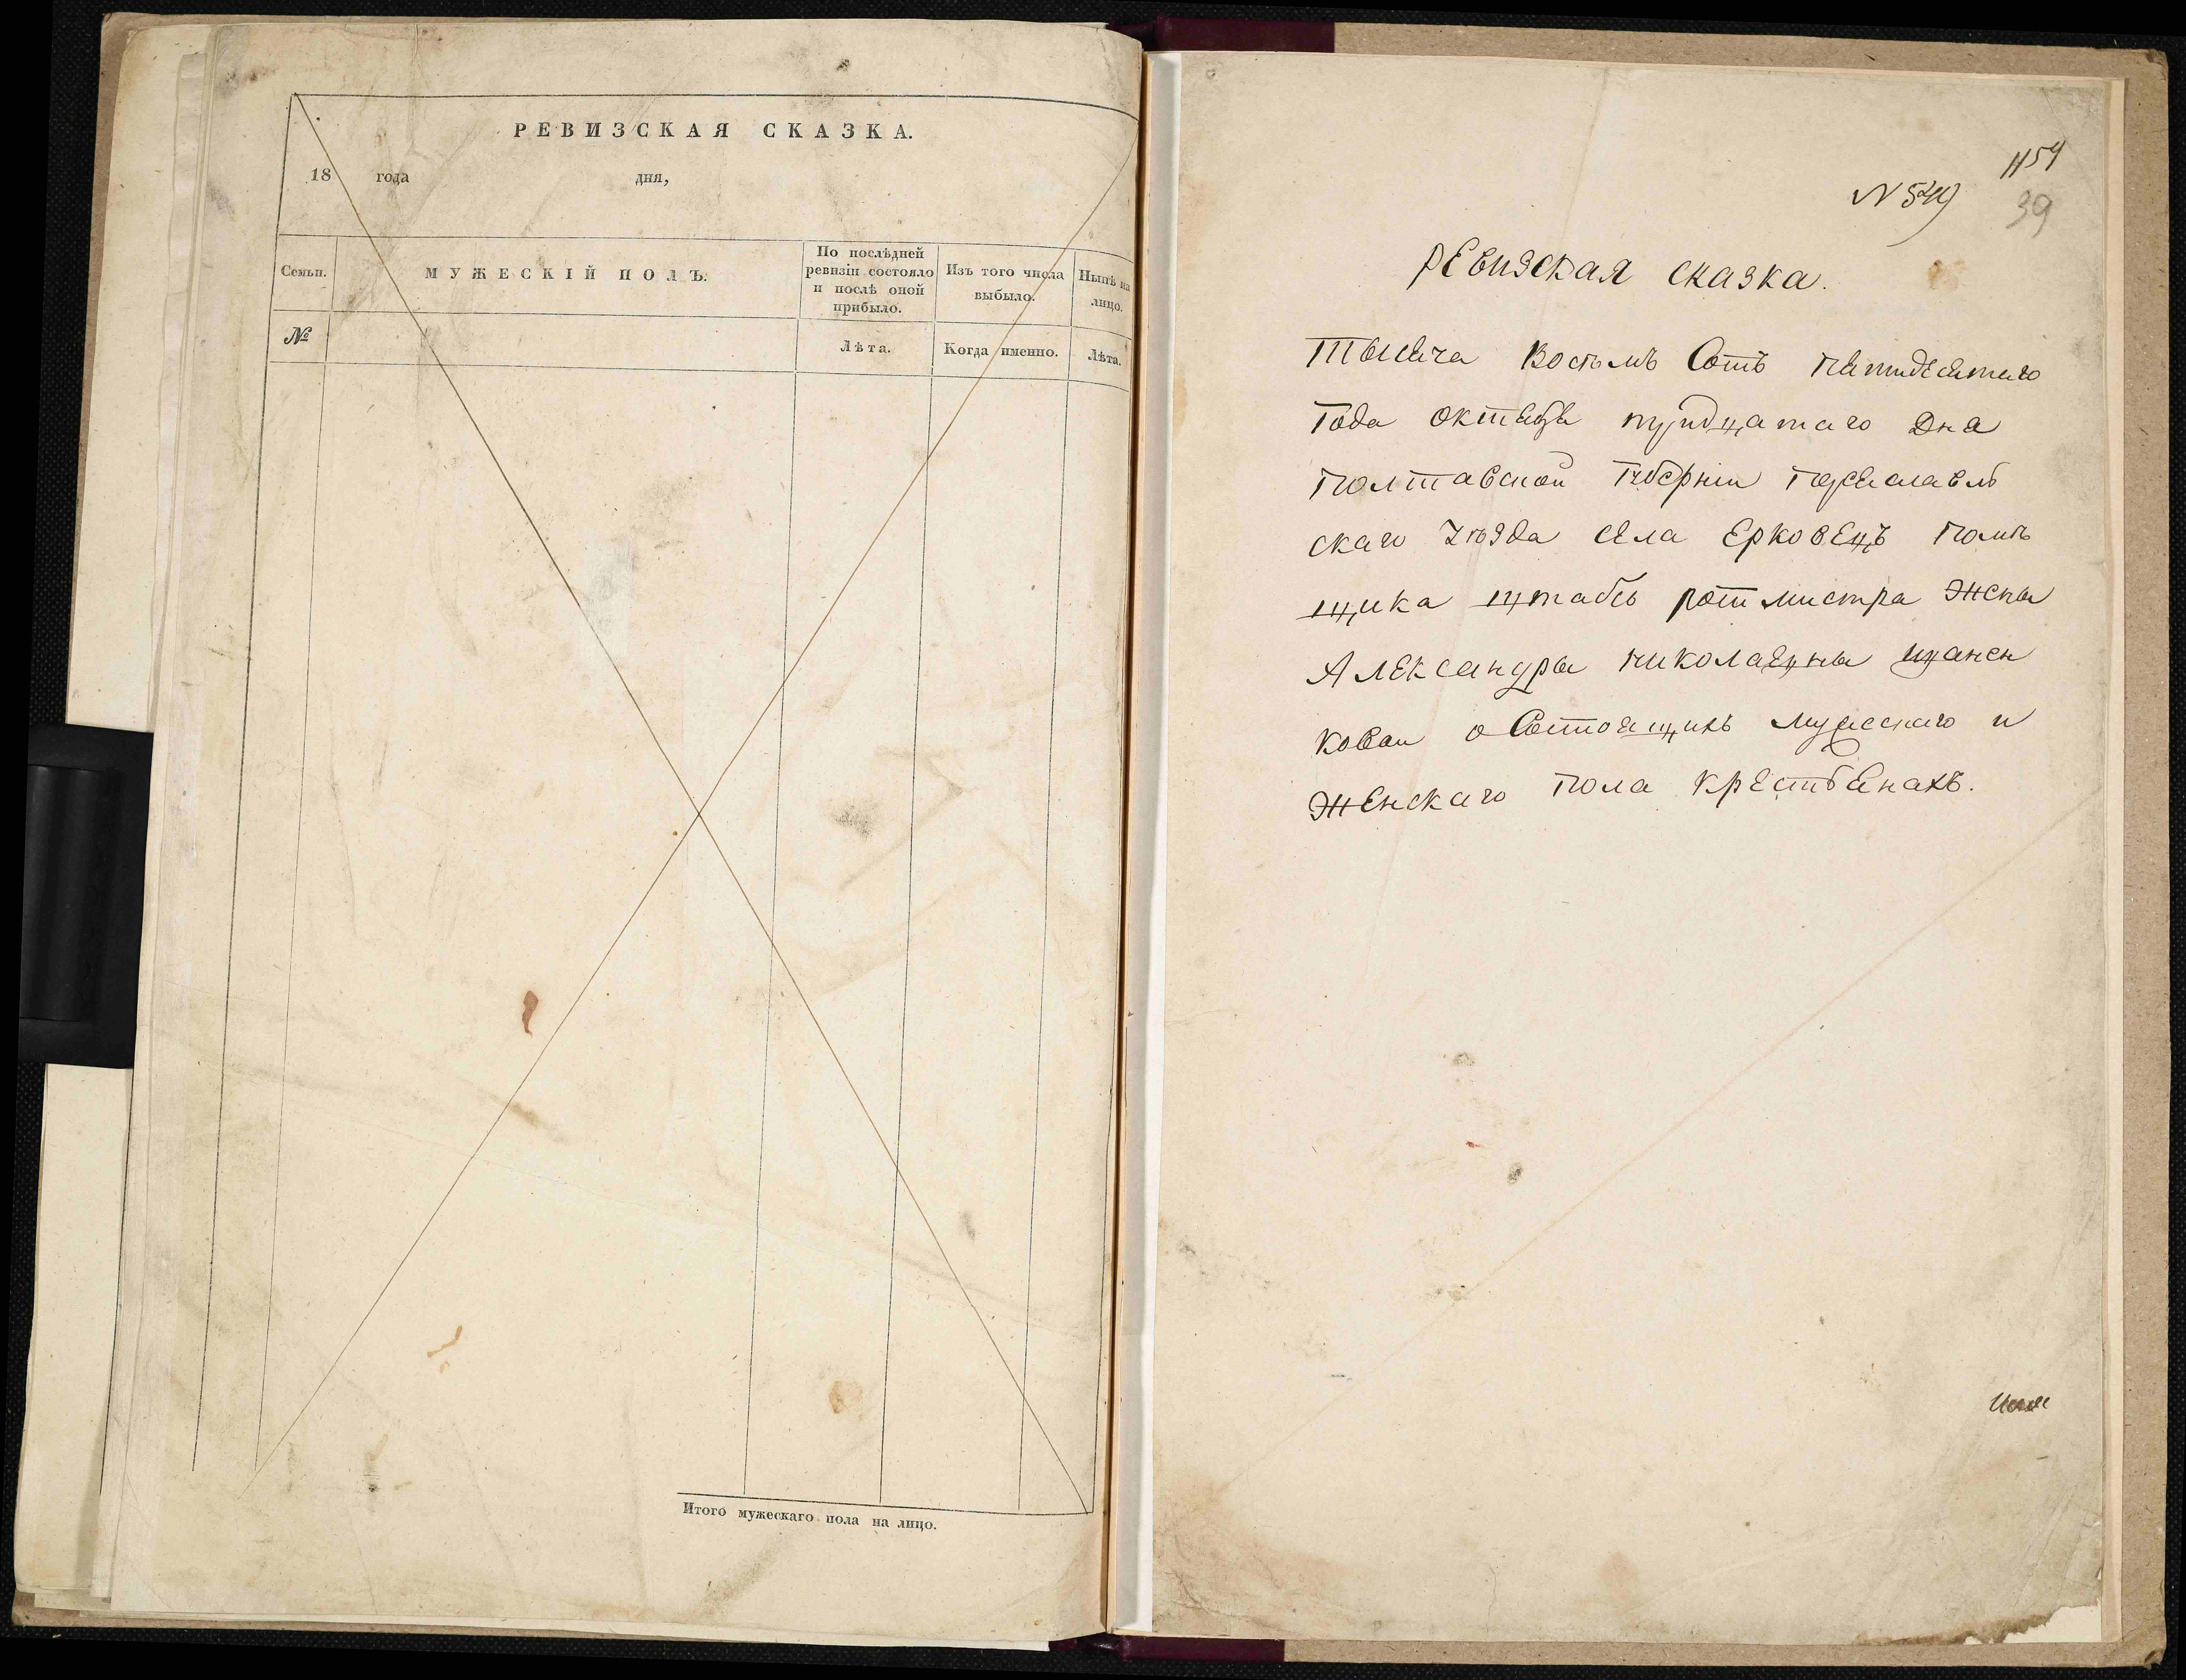 РЕВИЗСКАЯ СКАЗКА.
18 года дня,
Семьи.
МУЖЕСКІЙ ПОЛЪ.
По послѣдней
ревизіи состояло
и послѣ оной
прибыло.
Изъ того числа
выбыло.
Нынѣ на
лицо.
№
Лѣта.
Когда именно.
Лѣта.
Итого мужескаго пола на лицо.
1154
N 549
39
Ревизская сказка.
Тысяча Восѣмъ Сотъ пятидесятаго
Года октября тридцатаго Дня
Полтавской Губерніи Переяславль
скаго Уѣзда села Ерковецъ Помѣ
щика штабсъ ротмистра Жены
Александры Николаевны
о Состоящихъ мужескаго и
Женскаго пола Крестьянахъ.